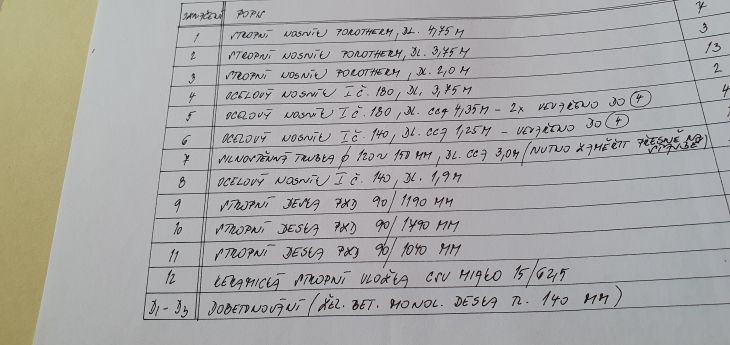 OZNAČENÍ POPIS
1 STROPNÍ NOSNÍK POROTHERM, DL. 4,75 M 7
2 STROPNÍ NOSNÍK POROTHERM, DL. 3,75 M 3
3 STROPNÍ NOSNÍK POROTHERM, DL. 2,0 M 13
4 OCELOVÝ NOSNÍK I Č. 180, DL. 3,75 M 2
5 OCELOVÝ NOSNÍK I Č. 180, DL. CCA 4,35 M - 2x VEVAŘENO DO 4 4
6 OCELOVÝ NOSNÍK I Č. 140, DL. CCA 1,25 M - VEVAŘENO DO 4
7 SILNOSTĚNNÁ TRUBKA ϕ 120 ~ 150 MM, DL. CCA 3,0 M (NUTNO ZAMĚŘIT PŘESNĚ NA STAVBĚ)
8 OCELOVÝ NOSNÍK I Č. 140, DL. 1,9 M
9 STROPNÍ DESKA PZD 90/1190 MM
10 STROPNÍ DESKA PZD 90/1490 MM
11 STROPNÍ DESKA PZD 90/1040 MM
12 KERAMICKÁ STROPNÍ VLOŽKA CSV MIAKO 15/62,5
D1 - D3 DOBETONOVÁNÍ (ŽEL. BET. MONOL. DESKA TL. 140 MM)